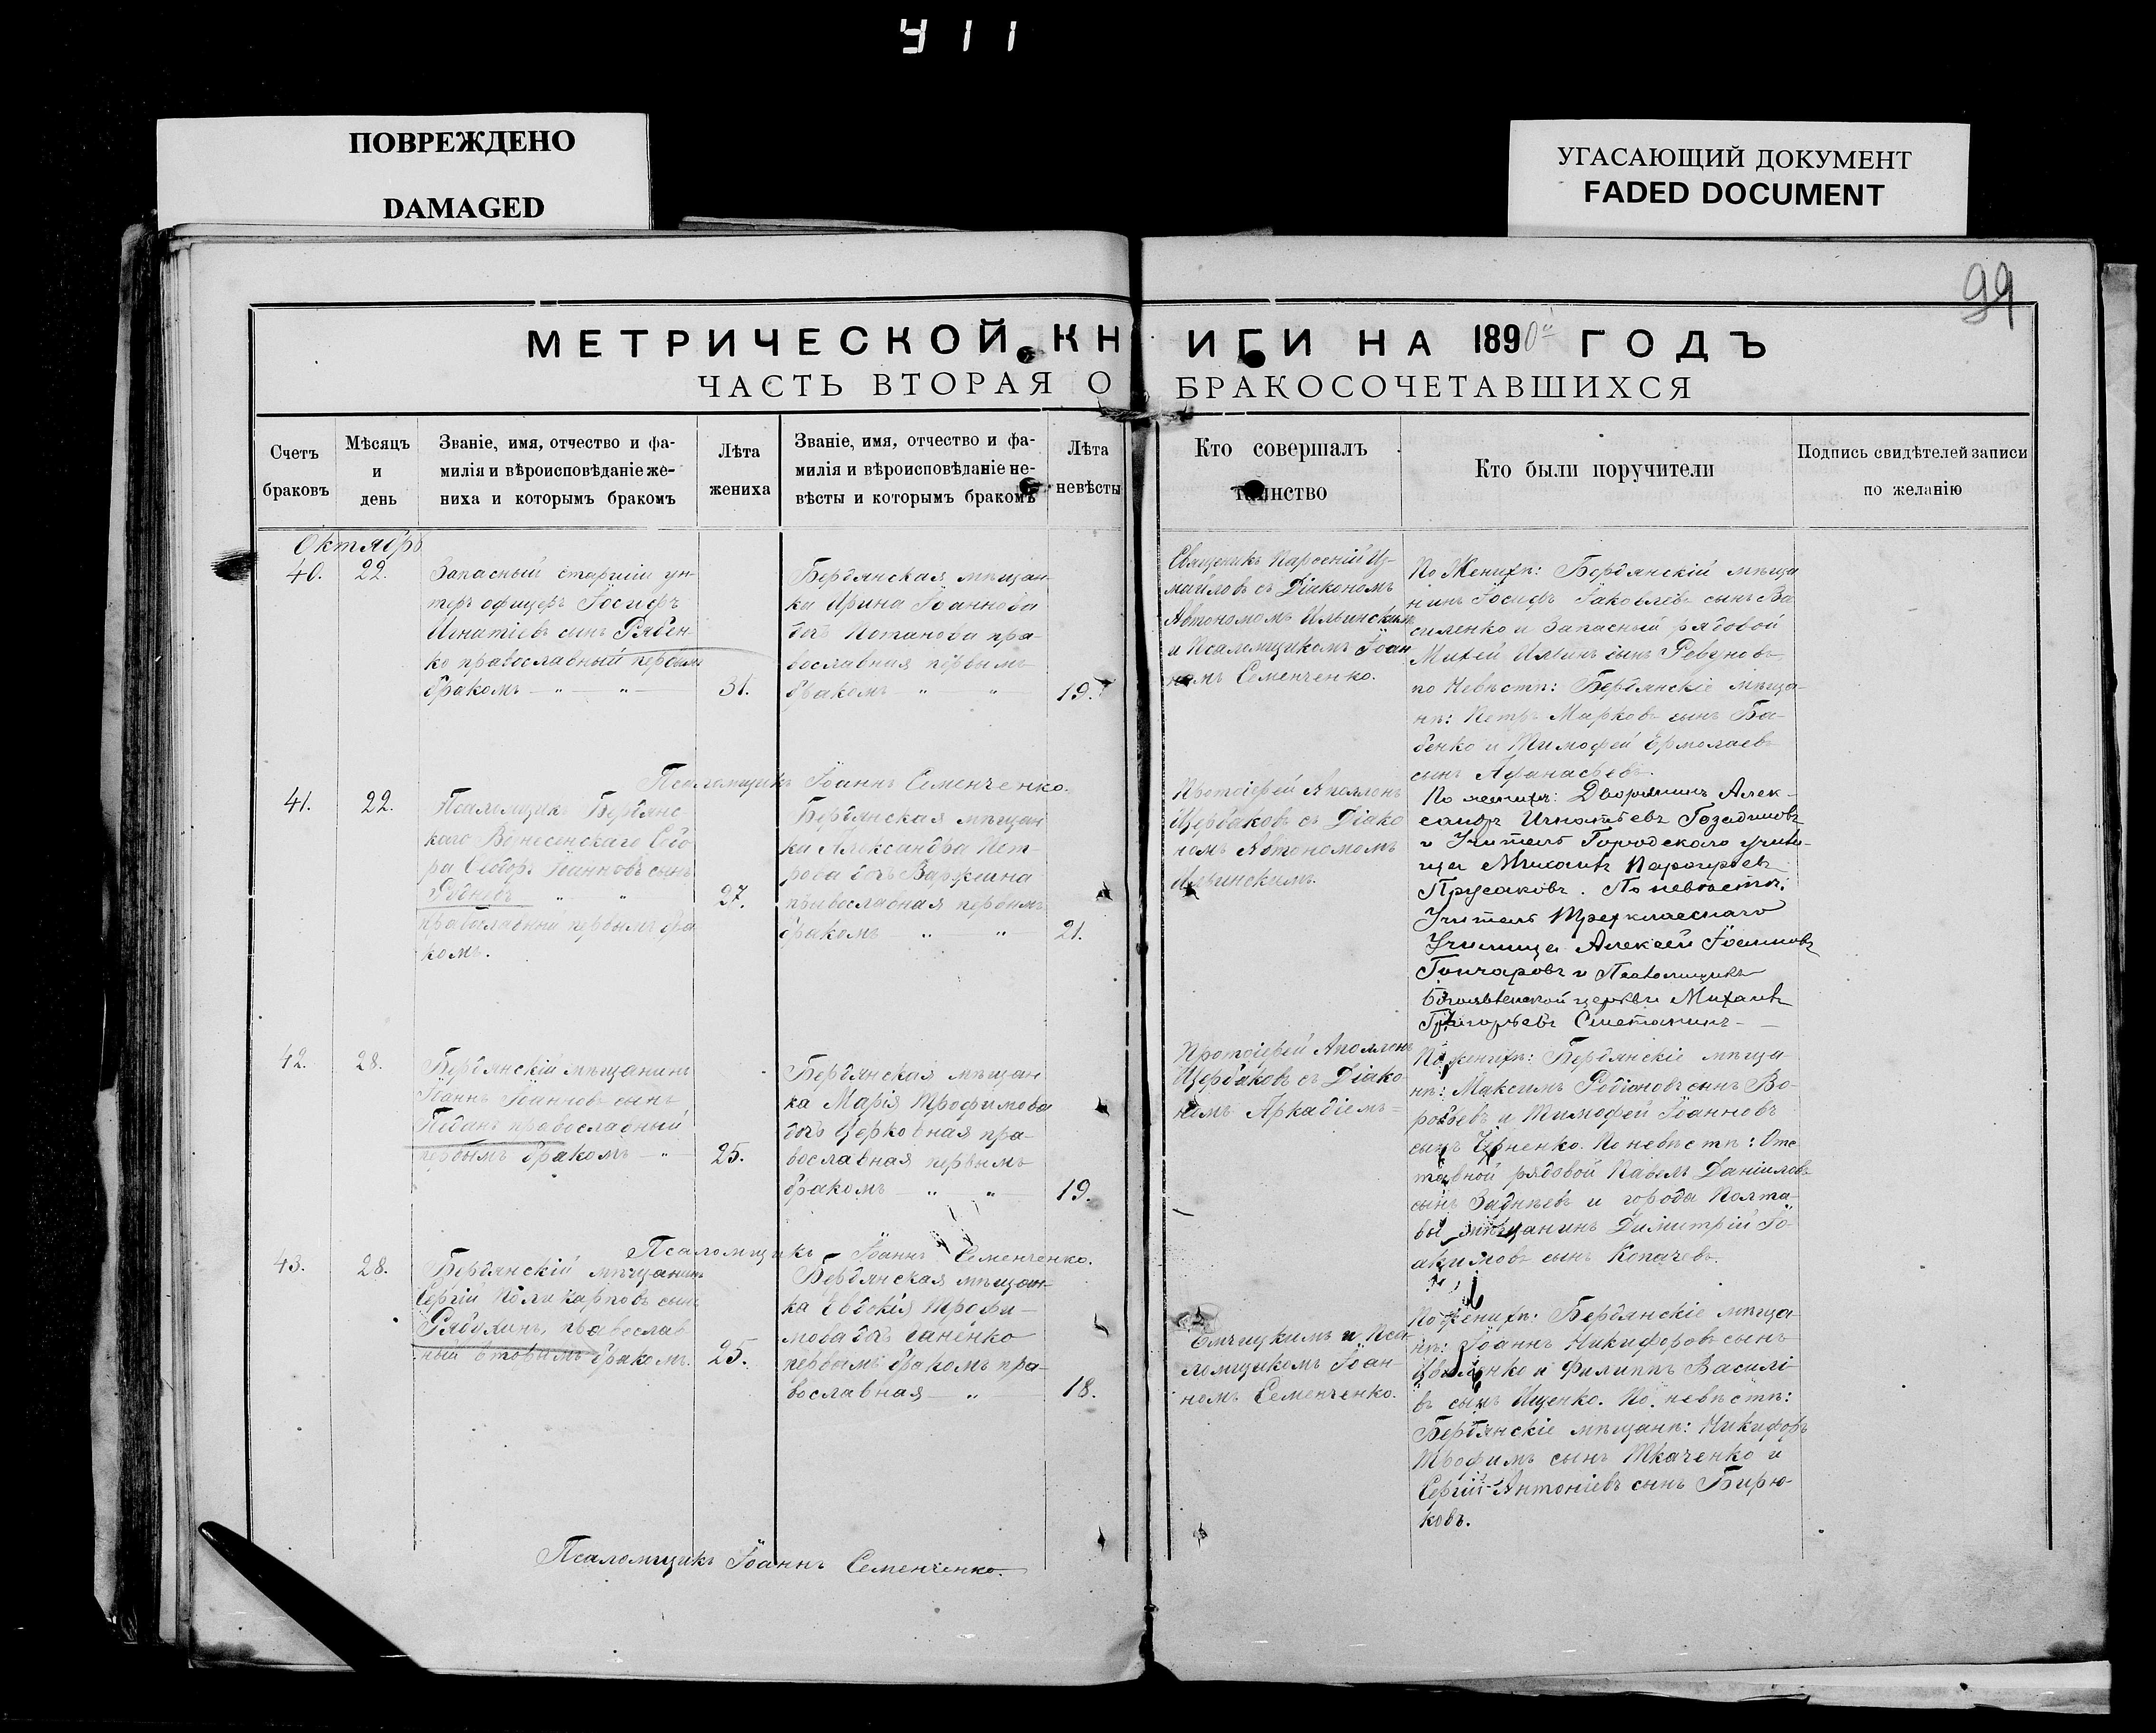 УII
ПОВРЕЖДЕНО
DAMAGED
УГАСАЮЩИЙ ДОКУМЕНТ
FADED DOCUMENT
99
МЕТРИЧЕСКОЙ КНИГИ НА 1890й ГОДЪ
ЧАСТЬ ВТОРАЯ О БРАКОСОЧЕТАВШИХСЯ
Счетъ
браковъ
Мѣсяцъ
и
день
Званіе, имя, отчество и фа-
милія и вѣроисповѣданіе же-
ниха и которымъ бракомъ
Лѣта
жениха
Званіе, имя, отчество и фа-
милія и вѣроисповѣданіе не-
вѣсты и которымъ бракомъ
Лѣта
невѣсты
Кто совершалъ
таинство
Кто были поручители
Подпись свидѣтелей записи
по желанію
Октябрь
40.
22.
Запасный старшій ун-
теръ офицеръ Іосифъ
Игнатіевъ сынъ Рябен-
ко православный первымъ
бракомъ — " — " —
31.
Бердянская мѣщан-
ка Ирина Іоаннова
дочь Потапова пра-
вославная первымъ
бракомъ " "
19.
Священикъ Парѳеній Из-
майловъ съ Діакономъ
Автономомъ Ильинскимъ
и Псаломщикомъ Іоан
номъ Семенченко.
По Женихѣ: Бердянскій мѣща
нинъ Іосифъ Іаковлевъ сынъ Ва
силенко и Запасный рядовой
Михей Ильинъ сынъ Ревуновъ
по Невѣстѣ: Бердянскіе мѣща-
нѣ: Петръ Марковъ сынъ Ба-
бенко и Тимофей Ермолаевъ
сынъ Афанасьевъ.
Псаломщикъ Іоаннъ Семенченко.
41.
22.
Псаломщикъ Бердянс
каго Вознесенскаго Собо
ра Ѳедоръ Іоанновъ сынъ
" "
православный первымъ бра
комъ.
27.
Бердянская мѣщан
ка Александра Пет-
рова дочь
православная первымъ
бракомъ " — "
21.
Протоіерей Аполлонъ
Щербаковъ съ Діако
номъ Автономомъ
Ильинскимъ.
По женихѣ: Дворянинъ Алек-
сандръ Игнатьевъ Гозадиновъ
и Учитель Городскаго учили-
ща Михаилъ
Прусаковъ. По невѣстѣ:
Учитель Трехкласснаго
Училища Алексѣй Іоанновъ
Гончаровъ и Псаломщикъ
церкви Михаилъ
Григорьевъ Сметанинъ —
42.
28.
Бердянскій мѣщанинъ
Іоаннъ Іоанновъ сынъ
Педанъ православный
первымъ бракомъ — "
25.
Бердянская мѣщан
ка Марія Трофимова
дочь Церковная пра-
вославная первымъ
бракомъ — " — "
19.
Протоіерей Аполлонъ
Щербаковъ съ Діако
номъ Аркадіемъ =
По женихѣ: Бердянскіе мѣща-
нѣ: Максимъ Родіоновъ сынъ Во-
робьевъ и Тимофей Іоанновъ
сынъ Черненко. По невѣстѣ: Отс
тавной рядовой Павелъ Даніиловъ
сынъ Заднѣевъ и города Полта-
вы мѣщанинъ Димитрій Іо-
акимовъ сынъ Копачевъ.
Псаломщикъ Іоаннъ Семенченко.
43.
28.
Бердянскій мѣщанинъ
Сергій Поликарповъ сынъ
Рябухинъ, православ
ный вторымъ бракомъ.
25.
Бердянская мѣщан-
ка Евдокія Трофи-
мова дочь Ганенко
первымъ бракомъ пра-
вославная — " —
18.
Омчицкимъ и Пса-
ломщикомъ Іоан-
номъ Семенченко.
По женихѣ: Бердянскіе мѣща-
нѣ: Іоаннъ Никифоровъ сынъ
и Филиппъ Василі-
въ сынъ Ищенко. По невѣстѣ:
Бердянскіе мѣщанѣ: Никифоръ
Трофимъ сынъ Ткаченко и
Сергій Антоніевъ сынъ Бирю-
ковъ.
Псаломщикъ Іоаннъ Семенченко.